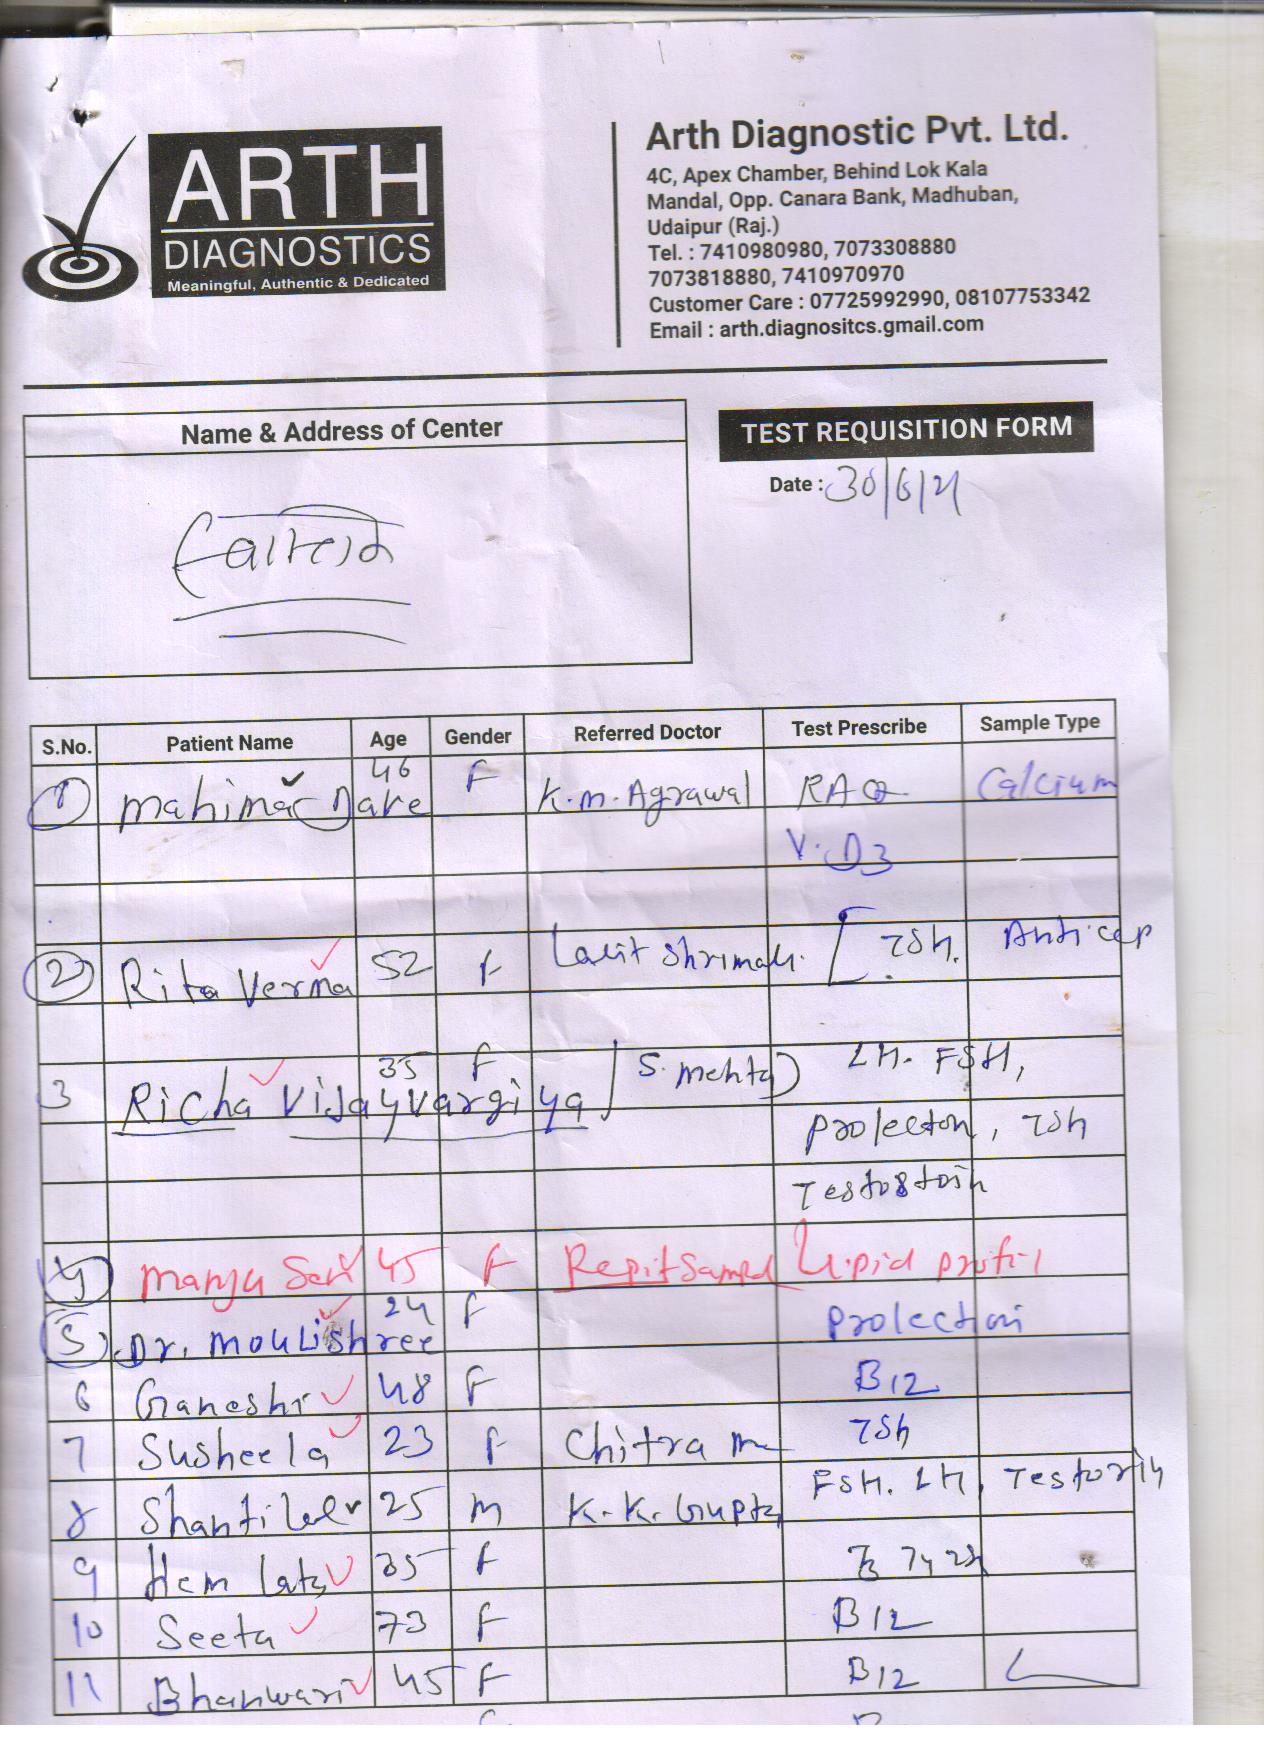 ARTH
DIAGNOSTICS
Meaningful, Authentic & Dedicated
Arth Diagnostic Pvt. Ltd.
4C, Apex Chamber, Behind Lok Kala
Mandal, Opp. Canara Bank, Madhuban,
Udaipur (Raj.)
Tel. : 7410980980, 7073308880
7073818880, 7410970970
Customer Care : 07725992990, 08107753342
Email : arth.diagnositcs.gmail.com
Name & Address of Center
TEST REQUISITION FORM
Date : 30/6/21
S.No. Patient Name Age Gender Referred Doctor Test Prescribe Sample Type
1 Mahima Dake 46 F K.M. Agrawal RAQ Calcium
V.D3
2 Rita Verma 52 F Lalit Shrimali. TSh. Anti ccp
3 Richa Vijayvargiya 35 F S. Mehta LH. FSH,
Prolecton, TSh
4 45 F Repit Sampel Lipid
5 Dr. Moulishree 24 F Prolection
6 Ganeshi 48 F B12
7 Susheela 23 F Chitra TSh
8 Shantilal 25 M K.K. Gupta FSH. LH,
9 Hem lata 35 F
10 Seeta 73 F B12
11 Bhanwari 45 F B12